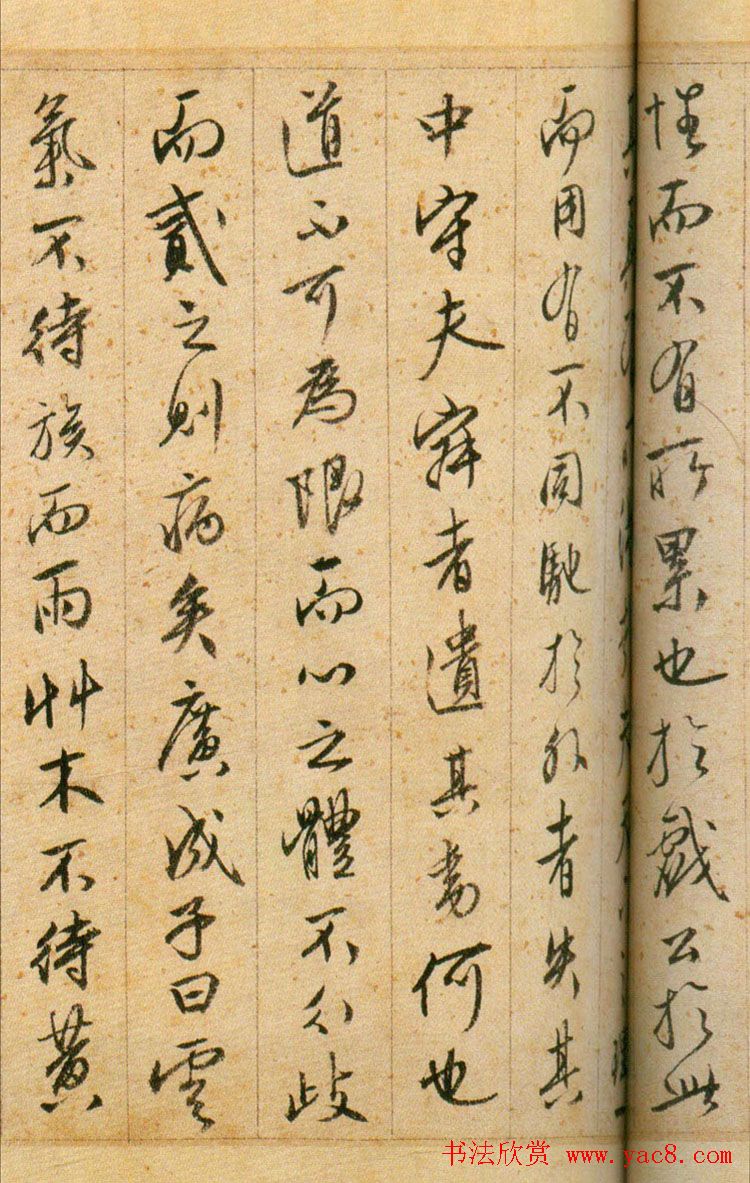 性而不有所累也於戲公於此
而用有不同馳於外者失其
中守夫寂者遺其安何也
道不可為限而心之體不可歧
而貳之則病矣廣成子曰雲
氣不待族而雨艸木不待黄
书法欣赏 www.yac8.com